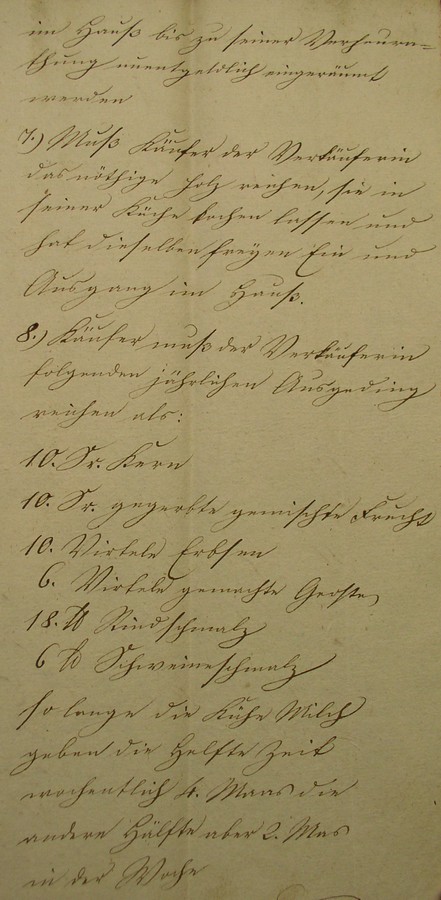 im Hauß bis zu seiner Verheura=
thung unentgeldlich eingeräumt
werden
7.) Muß Käufer der Verkäuferin
das nöthige Holz reichen, sie in
seiner Küche kochen lassen und
hat dieselbe freyen Ein und
Ausgang im Hauß.
8.) Käufer muß der Verkäuferin
folgenden jährlichen Ausgeding
reichen als:
10. Sr. Kern
10. Sr. gegerbte gemischte Frucht
10. Virtele Erbsen
6. Virtele gemachte Gerste,
18. ℔ Rindschmalz
6 ℔ Schweineschmalz
so lange die Kühe Milch
geben die Helfte Zeit
wochentlich 4. Maas die
andere Hälfte aber 2. Mas
in der Woche